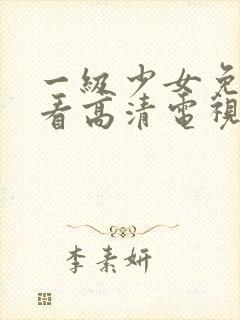 一級少女免
看高清電視
李素妍